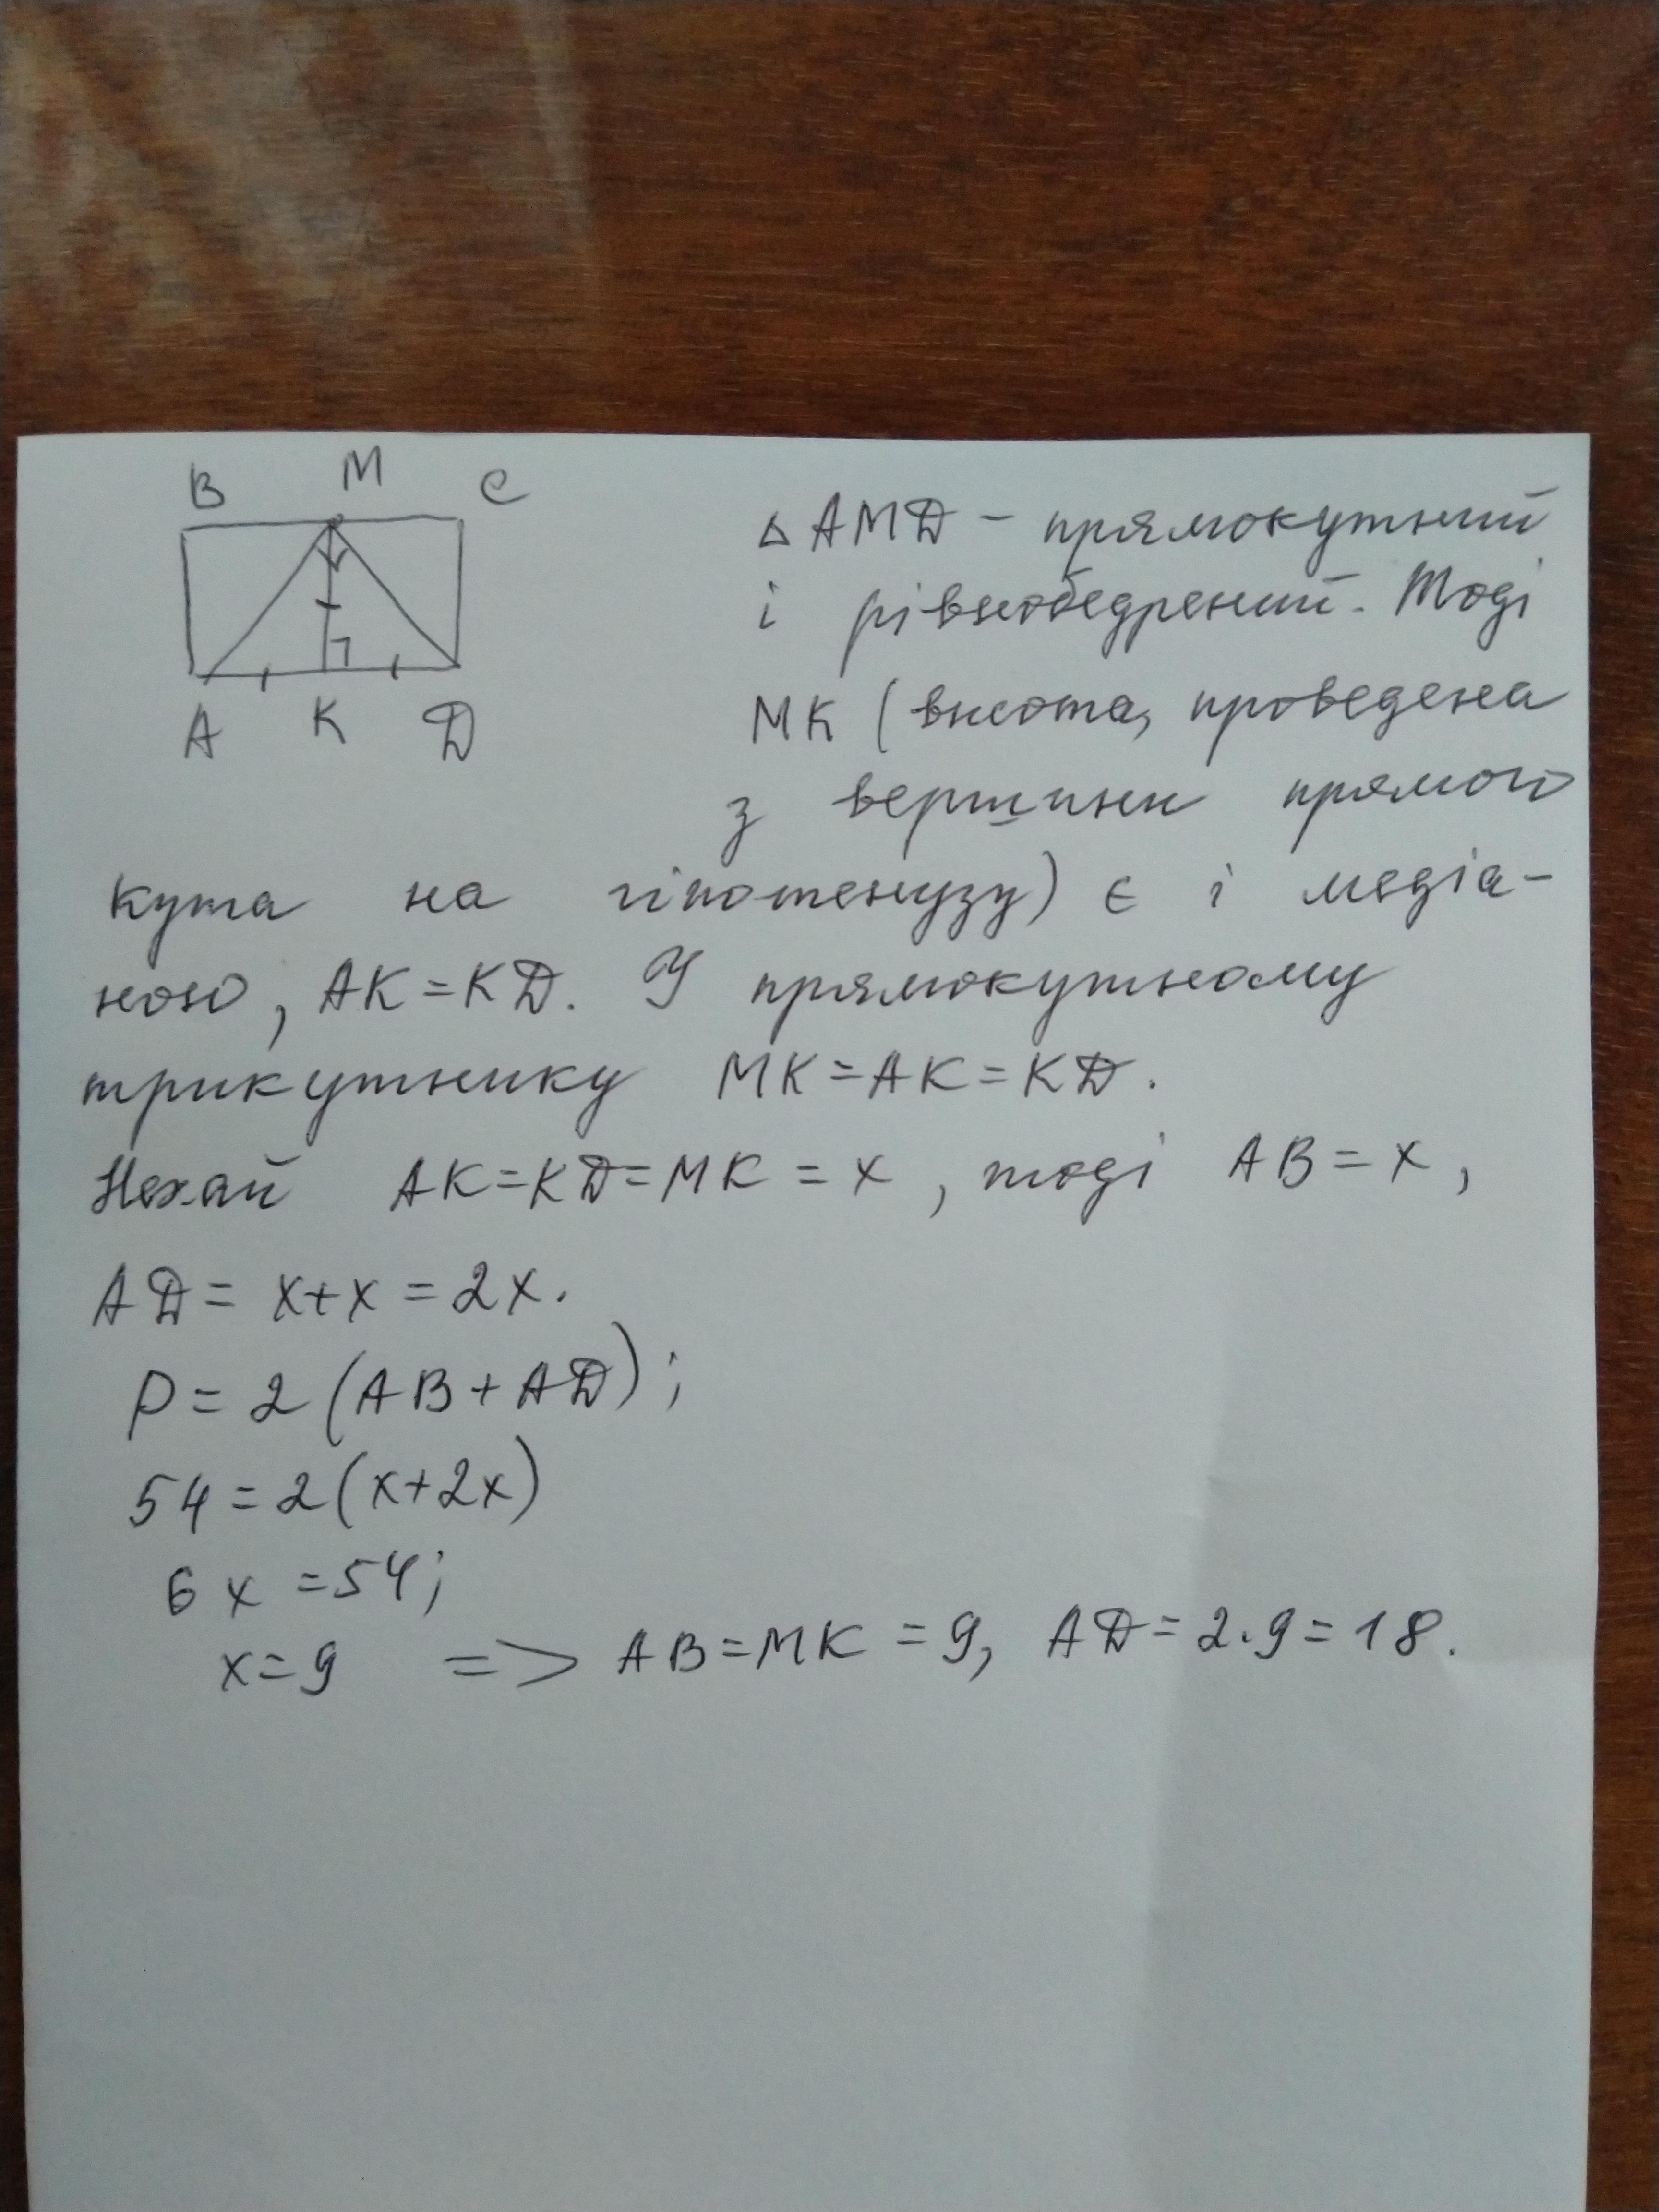 B M C
A K D
△ AMD – прямокутний
і рівнобедрений. Тоді
MK (висота, проведена
з вершини прямого
кута на гіпотенузу) є і медіа-
ною, AK = KD. У прямокутному
трикутнику MK = AK = KD.
Нехай AK = KD = MK = x, тоді AB = x,
AD = x+x = 2x.
P = 2 (AB + AD);
54 = 2(x+2x)
6x = 54;
x = 9 => AB = MK = 9, AD = 2·9 = 18.